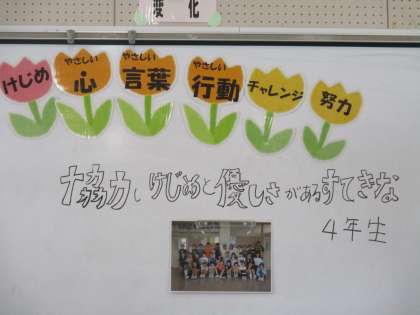 変化
けじめ
やさしい
心
やさしい
言葉
やさしい
行動
チャレンジ
努力
協力し けじめと優しさがあるすてきな
4年生